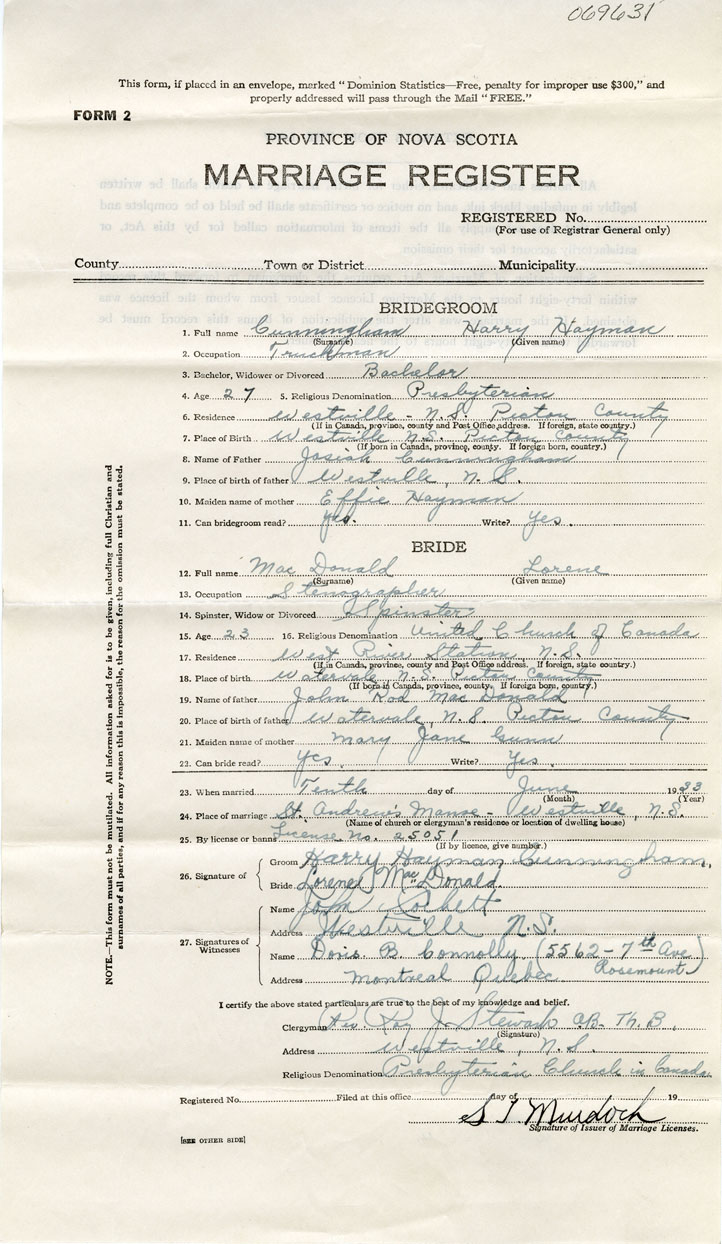 069631
This form, if placed in an envelope, marked "Dominion Statistics—Free, penalty for improper use $300," and
properly addressed will pass through the Mail "FREE."
FORM 2
PROVINCE OF NOVA SCOTIA
MARRIAGE REGISTER
REGISTERED No.
(For use of Registrar General only)
County Town or District Municipality
BRIDEGROOM
1. Full name Cunningham Harry Hayman
(Surname) (Given name)
2. Occupation Truckman
3. Bachelor, Widower or Divorced Bachelor
4. Age 27 5. Religious Denomination Presbyterian
6. Residence Westville - N.S. Pictou County
(If in Canada, province, county and Post Office address. If foreign, state country.)
7. Place of Birth Westville N.S. Pictou County
(If born in Canada, province, county. If foreign born, country.)
8. Name of Father Josiah Cunningham
9. Place of birth of father Westville, N.S.
10. Maiden name of mother Effie Hayman
11. Can bridegroom read? yes. Write? yes.
BRIDE
12. Full name Mac Donald Lorene
(Surname) (Given name)
13. Occupation Stenographer
14. Spinster, Widow or Divorced Spinster
15. Age 23 16. Religious Denomination United Church of Canada
17. Residence West River Station, N.S.
(If in Canada, province, county and Post Office address. If foreign, state country.)
18. Place of birth Watervale, N.S. Pictou County
(If born in Canada, province, county. If foreign born, country.)
19. Name of father John Rod Mac Donald
20. Place of birth of father Watervale, N.S. Pictou County
21. Maiden name of mother Mary Jane Gunn
22. Can bride read? Yes. Write? Yes.
23. When married Tenth day of June 1933
(Month) (Year)
24. Place of marriage St. Andrew's Manse - Westville, N.S.
(Name of church or clergyman's residence or location of dwelling house)
25. By license or banns License No. 25051
(If by licence, give number.)
26. Signature of
Groom Harry Hayman Cunningham.
Bride Lorene MacDonald.
27. Signatures of Witnesses
Name John
Address Westville N.S.
Name Doris B. Connolly, (5562-7th Ave
Rosemount)
Address Montreal Quebec
I certify the above stated particulars are true to the best of my knowledge and belief.
Clergyman Rev Roy J. Stewart AB. Th. B.
(Signature)
Address Westville, N.S.
Religious Denomination Presbyterian Church in Canada.
Registered No. Filed at this office day of 19
S T Murdoch
Signature of Issuer of Marriage Licenses.
[SEE OTHER SIDE]
NOTE.—This form must not be mutilated. All information asked for is to be given, including full Christian and
surnames of all parties, and if for any reason this is impossible, the reason for the omission must be stated.